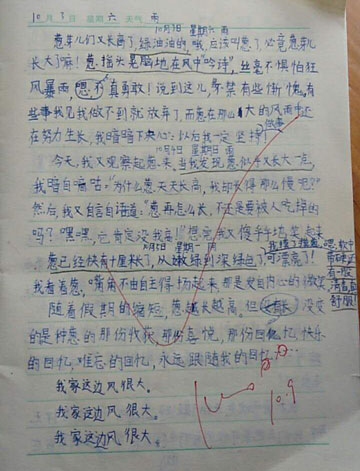 10月3日 星期六 天气 雨
10月3日 星期六 雨
葱芽儿们又长高了,绿油油的,哦,应该叫葱了,必竟葱芽儿
长大了嘛!葱摇头晃脑地在风中"吟诗",丝毫不惧怕狂
风暴雨,嗯,不,真勇敢!说到这儿,我不禁有些惭愧,有
些事我见我做不到就放弃了,而葱在那么大的风雨中还
在努力生长,我暗暗下决心:以后我一定坚持!
10月4日 星期日 雨
今天,我又观察起葱来,当我发现葱似乎又长大一点,
我暗自嘀咕:"为什么葱天天长高,我却长得那么慢呢?"
然后,我又自言自语道:"葱再怎么长,不还是要被人吃掉的
吗?嘿嘿,它肯定没我高!"想完,我又傻乎乎地笑起来
10月5日 星期一 雨
葱已经快有十厘米长了,从嫩绿到深绿色了,可漂亮了!
我看着葱,嘴角不由自主得扬起来,那是发自内心的微笑
随着假期的缩短,葱越长越高。但没变
的是种葱的那份收获,那份喜悦,那份回忆,快乐
的回忆,难忘的回忆,永远跟随我的回忆。
我家这边风很大。
我家这边风很大。
我家这边风很大。
10.9